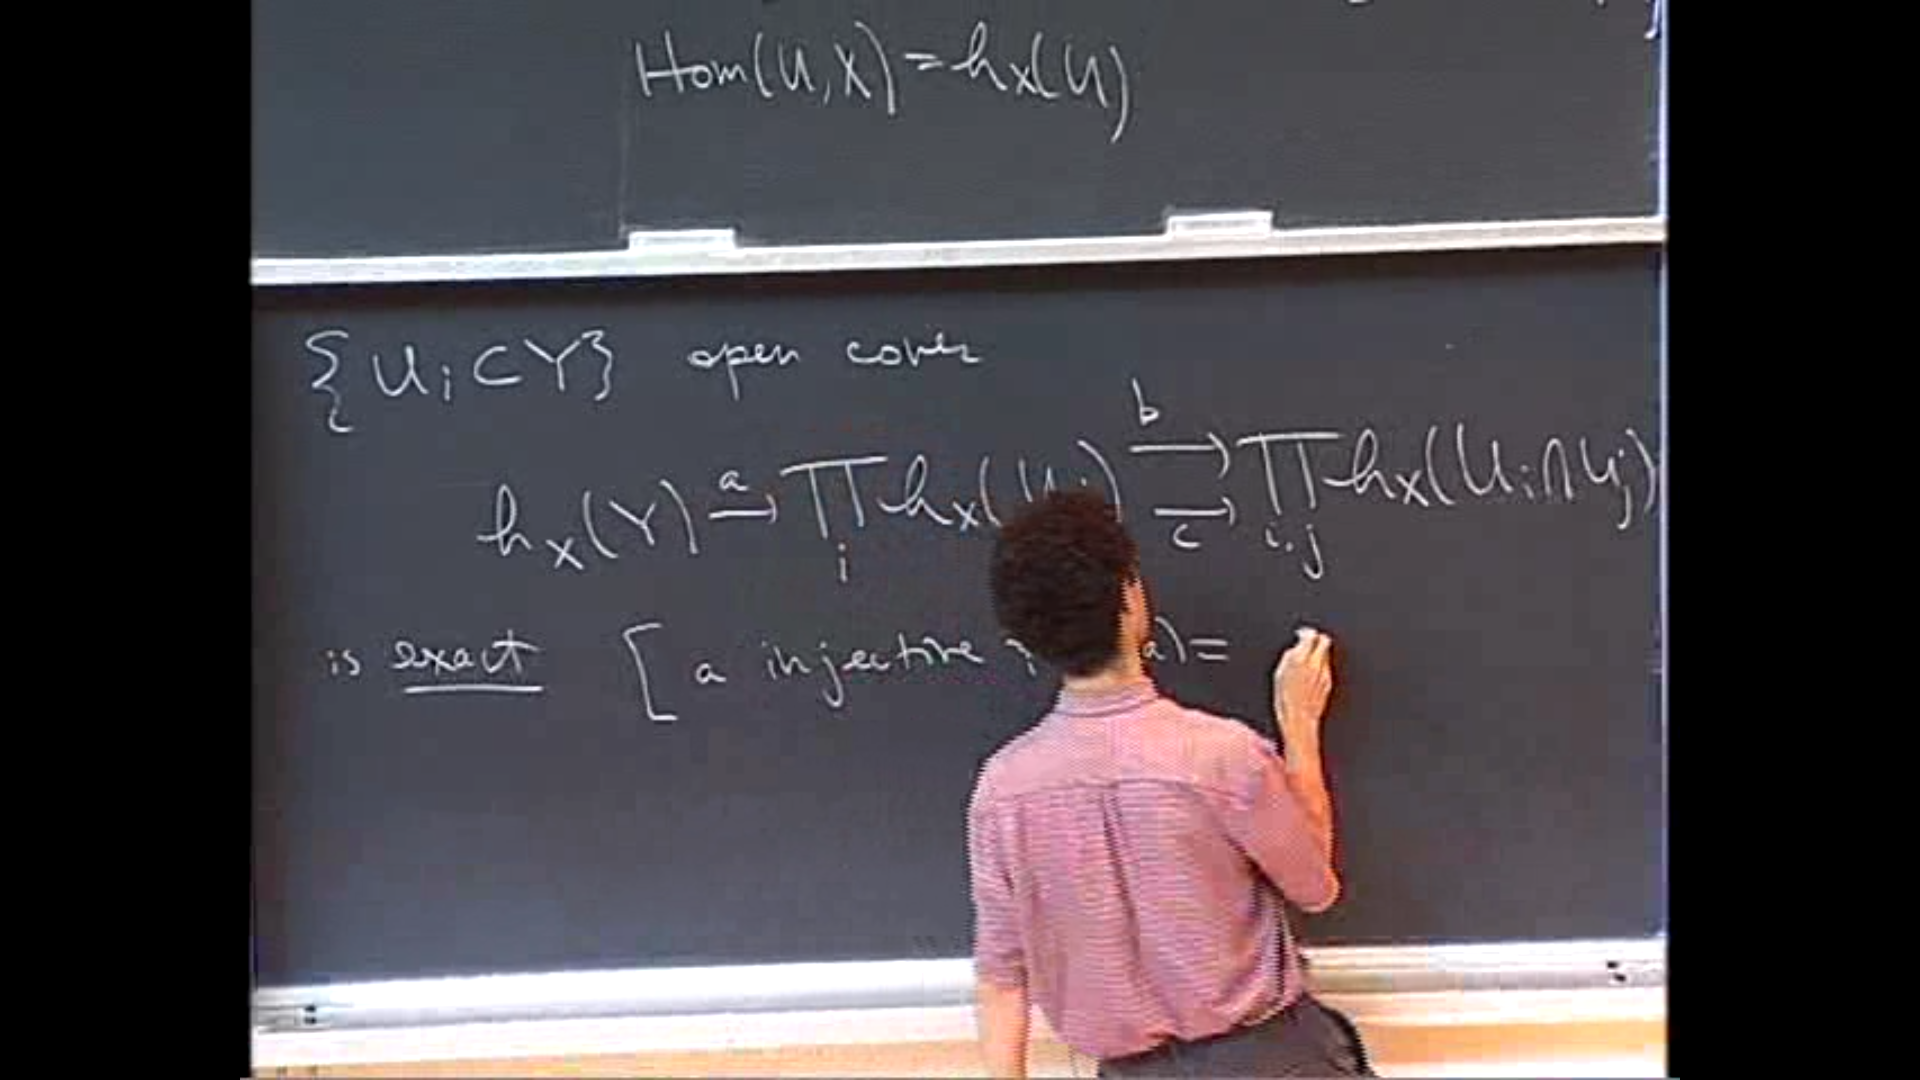 Hom(U,X) = h_X(U)
{U_i ⊂ Y} open cover
b
h_X(Y) →^a ∏_i h_X(U_i) ⇉ ∏_{i,j} h_X(U_i ∩ U_j)
c
is exact [ a injective a) =